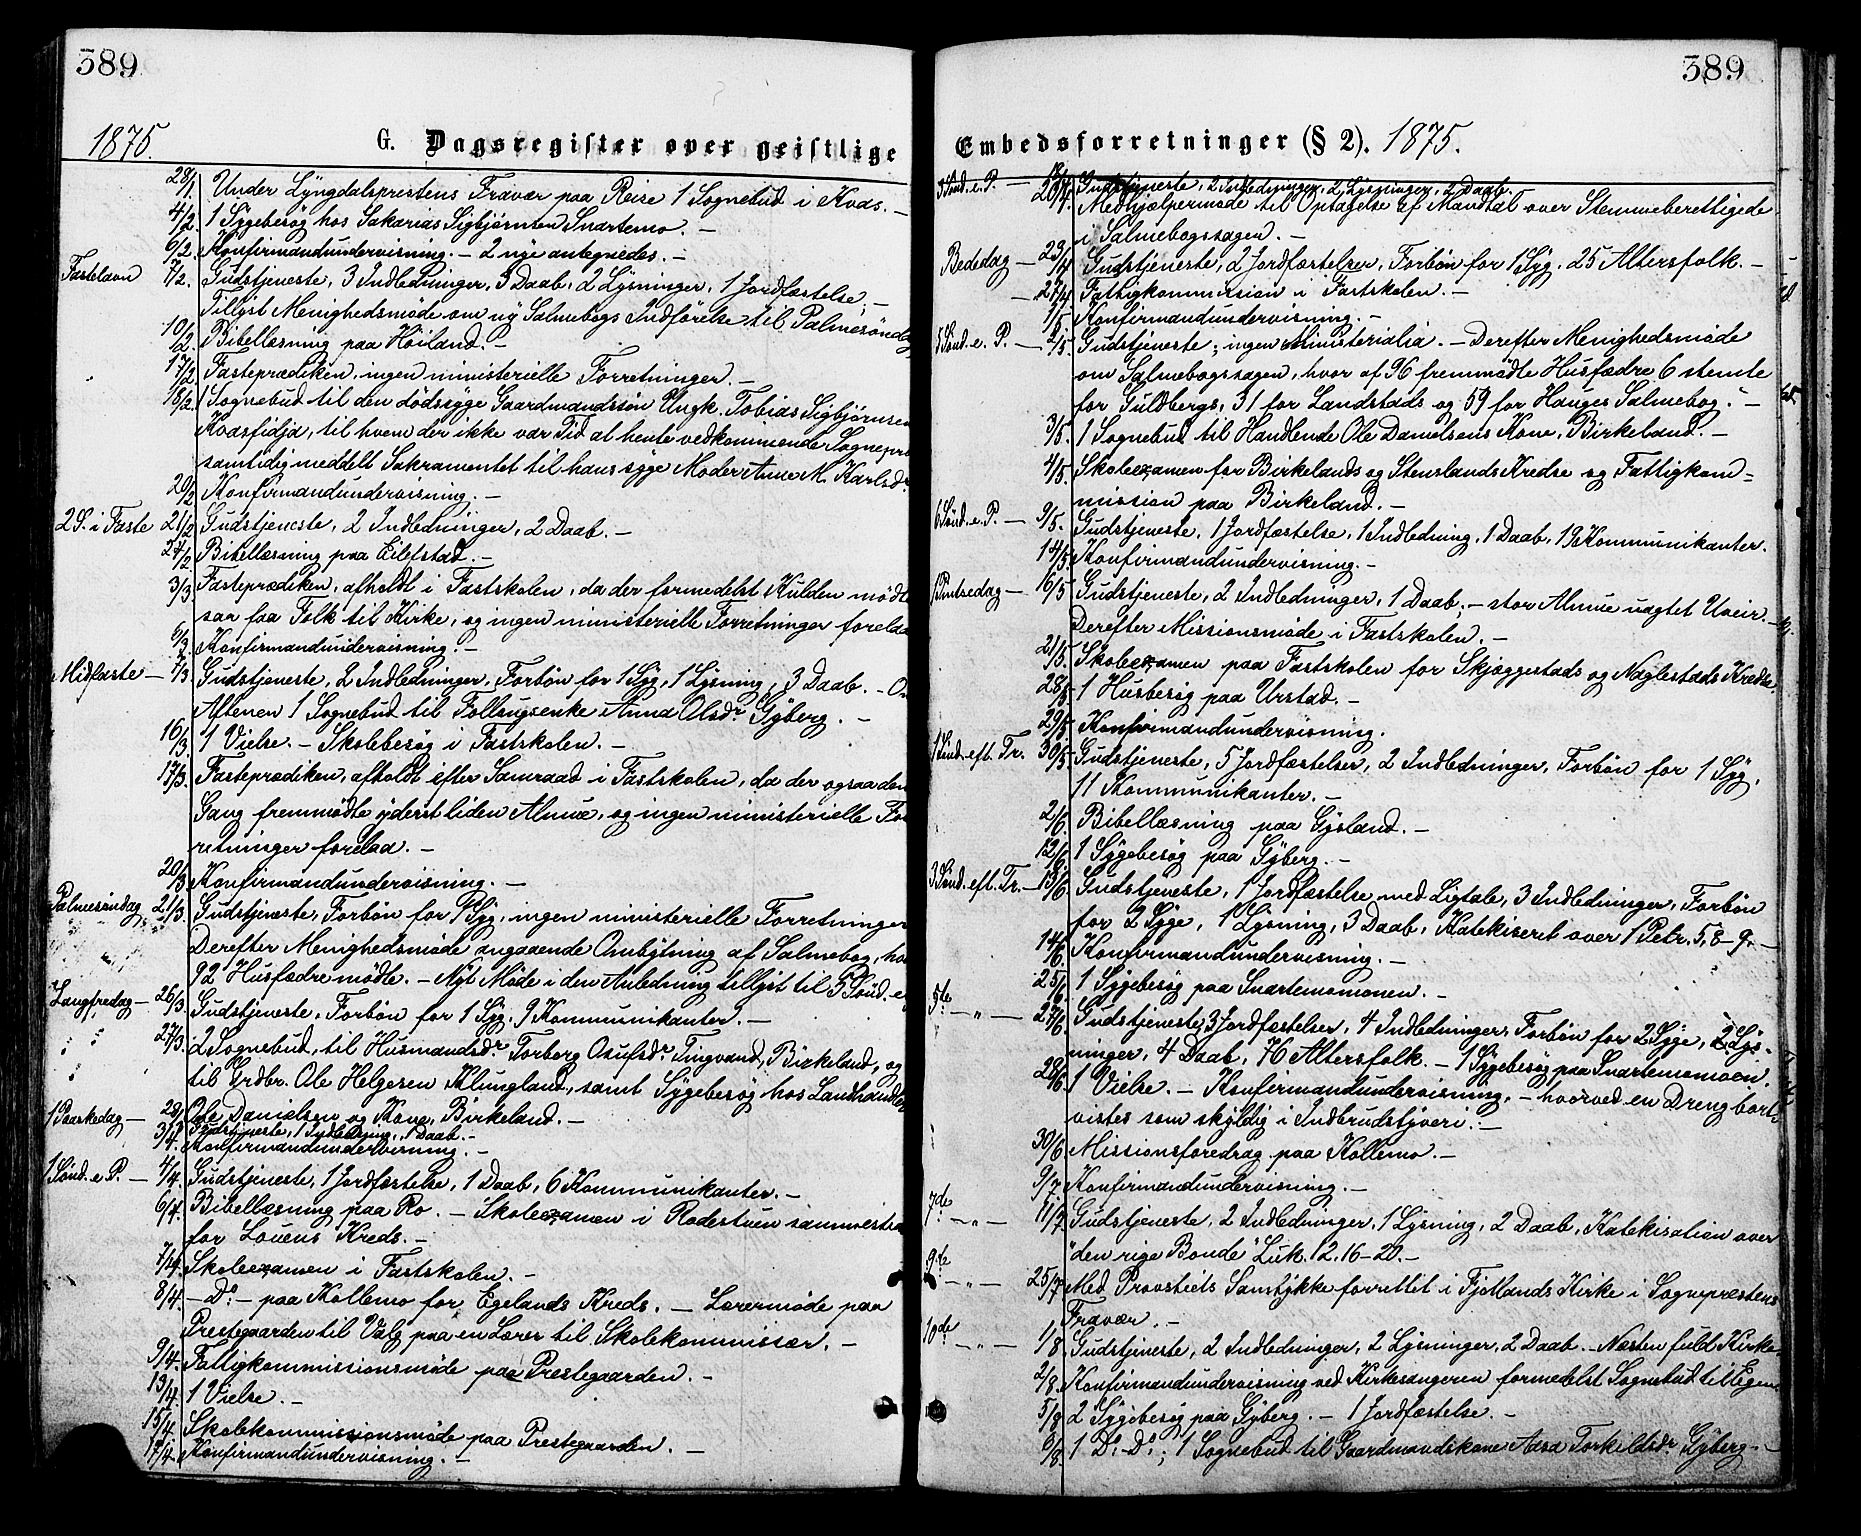 389
1875.
G. Dagsregister over geistlige
28/1 Under Lyngdalsprestens Fravær paa Reise 1 Sognebud i Kvas. —
4/2 1 Sygebesøg hos Sakarias Sigbjørnsen Snartemo. —
6/2. Konfirmandundervisning. — 2 nye antegnedes. —
Fastelavn 7/2. Gudstjeneste, 3 Indledninger, 3 Daab, 2 Lysninger, 1 Jordfæstelse. —
Tillyst Menighedsmøde om ny Salmebogs Indførelse til Palmesøndag
10/2 Bibellæsning paa Høiland. —
17/2 Fasteprædiken, ingen ministerielle Forretninger. —
18/2. 1 Sognebud til den dødssyge Gaardmandssøn Ungk. Tobias Sigbjørnsen
Kvasfidja, til hvem der ikke var Tid at hente vedkommende Sognepr
samtidig meddelt Sakramentet til hans syge Moder Anne M. Karlsd.
20/2 Konfirmandundervisning. —
2 S. i Faste 21/2 Gudstjeneste, 2 Indledninger, 2 Daab. —
24/2 Bibellæsning paa Eilefstad. —
3/3 Fasteprædiken, afholdt i Fastskolen, da der formedelst Kulden mødte
saa faa Folk til Kirke, og ingen ministerielle Forretninger forelaa
6/3 Konfirmandundervisning. —
Midfaste — 7/3 Gudstjeneste, 2 Indledninger, Forbøn for 1 Syg, 1 Lysning, 3 Daab. — Om
Aftenen 1 Sognebud til Follaugsenke Anna Olsdr Gyberg. —
16/3 1 Vielse. — Skolebesøg i Fastskolen. —
17/3. Fasteprædiken, afholdt efter Samraad i Fastskolen, da der ogsaa den
Gang fremmødte yderst liden Almue, og ingen ministerielle For
retninger forelaa. —
20/3 Konfirmandundervisning. —
Palmesøndag 21/3. Gudstjeneste, Forbøn for 1 Syg, ingen ministerielle Forretninger
Derefter Menighedsmøde angaaende Ombytning af Salmebog, hvo
92 Husfædre mødte. — Nyt Møde i den Anledning tillyst til 5 Sønd. e
Langfredag — 26/3 Gudstjeneste, Forbøn for 1 Syg, 9 Kommunikanter. —
27/3. 2 Sognebud, til Husmandsdr Torberg Osufsdr Tingvand, Birkeland, og
til Grdbr. Ole Helgesen Klungland, samt Sygebesøg hos Landhandler
Ole Danielsen og Kone, Birkeland. —
1 Paaskedag — 28/3 Gudstjeneste, 1 Indledning, 1 Daab. —
3/4. Konfirmandundervisning. —
1 Sønd. e P. — 4/4. Gudstjeneste, 1 Jordfæstelse, 1 Daab, 6 Kommunikanter. —
6/4. Bibellæsning paa Ro. — Skoleexamen i Rodestuen sammesteds
for Louens Kreds. —
7/4. Skoleexamen i Fastskolen. —
8/4. — Do — paa Kollemo for Egelands Kreds. — Lærermøde paa
Prestegaarden til Valg paa en Lærer til Skolekommissær. —
9/4. Fattigkommissionsmøde paa Prestegaarden. —
13/4. 1 Vielse. —
15/4 Skolekommissionsmøde paa Prestegaarden. —
17/4. Konfirmandundervisning. —
389
Embedsforretninger (§ 2). 1875.
3 Sønd. e. P. — 18/4 Gudstjeneste, 2 Indledninger, 2 Lysninger, 2 Daab.
20/4. Medhjælpermøde til Optagelse af Mandtal over Stemmeberettigede
i Salmebogssagen. —
Bededag — 23/4 Gudstjeneste, 2 Jordfæstelser, Forbøn for 1 Syg. 25 Altersfolk. —
— 27/4 Fattigkommission i Fastskolen. —
1/5 Konfirmandundervisning. —
5 Sønd. e. P. — 2/5. Gudstjeneste; ingen Ministerialia. — Derefter Menighedsmøde
om Salmebogssagen, hvor af 96 fremmødte Husfædre 6 stemte
for Guldbergs, 31 for Landstads og 59 for Hauges Salmebog. —
3/5. 1 Sognebud til Handlende Ole Danielsens Kone, Birkeland. —
4/5. Skoleexamen for Birkelands og Stenslands Kredse og Fattigkom-
mission paa Birkeland. —
6 Sønd. e. P. — 9/5. Gudstjeneste, 1 Jordfæstelse, 1 Indledning, 1 Daab, 19 Kommunikanter.
14/5. Konfirmandundervisning. —
1 Pintsedag — 16/5 Gudstjeneste, 2 Indledninger, 1 Daab. — stor Almue uagtet Uveir. —
Derefter Missionsmøde i Fastskolen. —
21/5. Skoleexamen paa Fastskolen for Skjeggestads og Neglestads Kredse.
28/5. 1 Husbesøg paa Urstad. —
29/5 Konfirmandundervisning.
1 Sønd. eft. Tr. 30/5 Gudstjeneste, 5 Jordfæstelser, 2 Indledninger, Forbøn for 1 Syg,
11 Kommunikanter. —
2/6. Bibellæsning paa Gysland. —
12/6. 1 Sygebesøg paa Gyberg. —
3 Sønd. eft. Tr. — 13/6 Gudstjeneste, 1 Jordfæstelse med Ligtale, 3 Indledninger, Forbøn
for 2 Syge, 1 Lysning, 3 Daab, Katekiseret over 1 Petr. 5, 8-9. —
14/6. Konfirmandundervisning. —
25/6. 1 Sygebesøg paa Snartemomonen. —
5te — „ — 27/6 Gudstjeneste, 3 Jordfæstelser, 4 Indledninger, Forbøn for 2 Syge, 2 Lys-
ninger, 4 Daab, 76 Altersfolk. — 1 Sygebesøg paa Snartemomoen.
28/6. 1 Vielse. — Konfirmandundervisning, — hvorved en Dreng bort-
vistes som skyldig i Indbrudstyveri. —
30/6 Missionsforedrag paa Kollemo. —
9/7 Konfirmandundervisning. —
7de — „ — 11/7 Gudstjeneste, 2 Indledninger, 1 Lysning, 2 Daab, Katekisation over
"den rige Bonde" Luk. 12. 16-20. —
9de — „ — 25/7 Med Provstiets Samtykke forrettet i Fjotlands Kirke i Sogneprestens
Fravær. —
10de — „ — 1/8 Gudstjeneste, 2 Indledninger, 2 Lysninger, 2 Daab. — Næsten fuld Kirke.
2/8. Konfirmandundervisning ved Kirkesangeren formedelst Sognebud til Egen
5/8 2 Sygebesøg paa Gyberg. — 1 Jordfæstelse. —
6/8. 1 Do Do; 1 Sognebud til Gaardmandskone Aasa Torkildsdr Gyberg. —